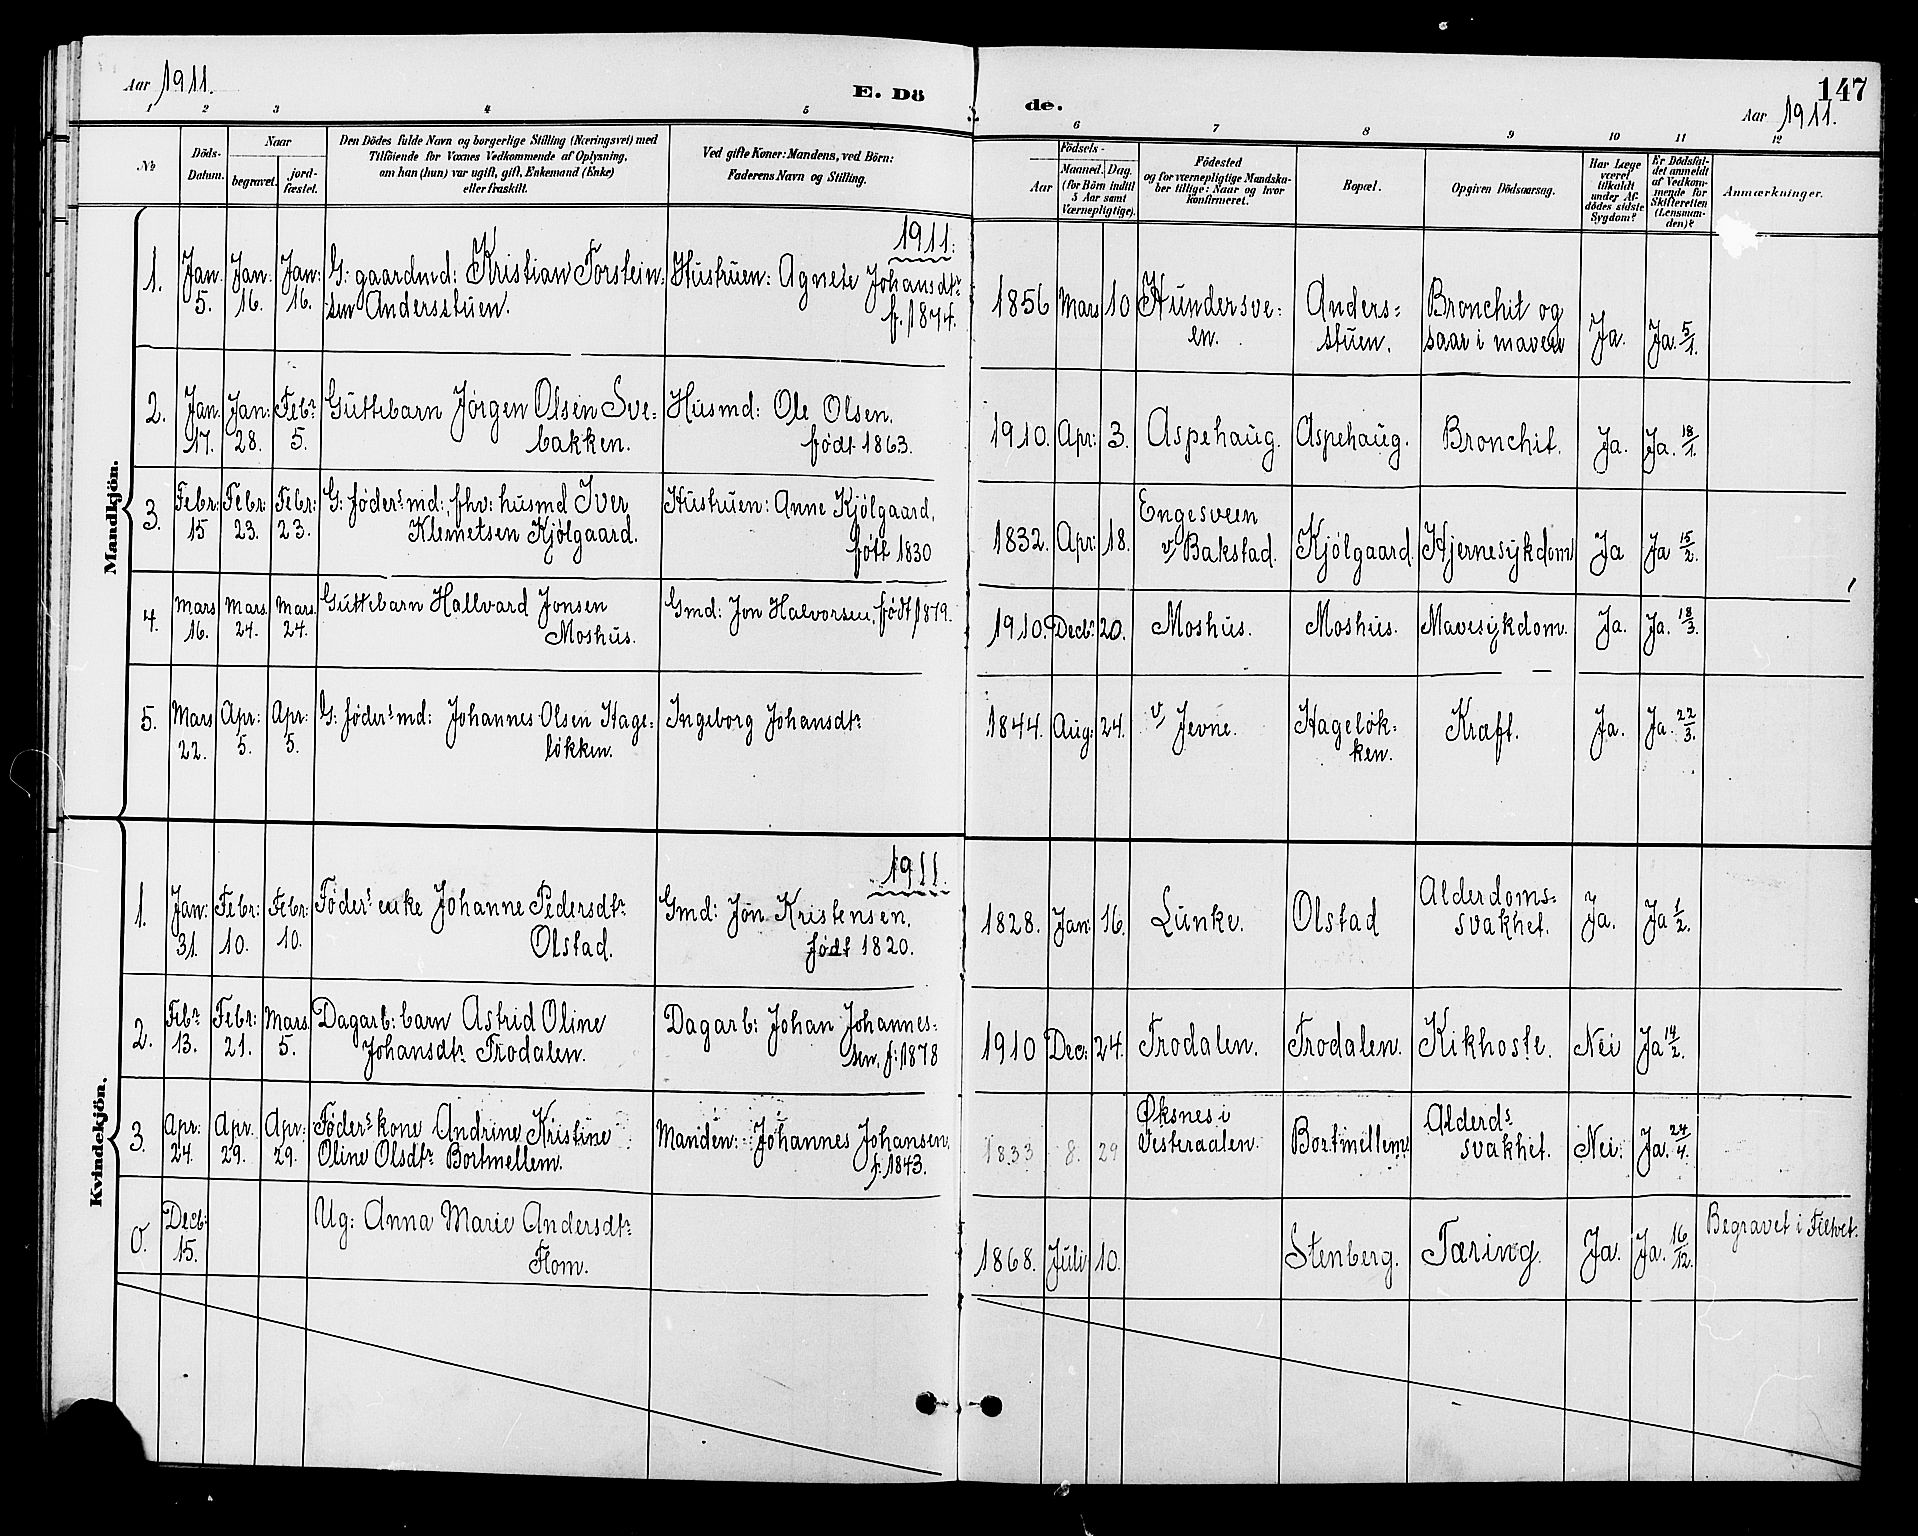 Aar 1911.
E. Dö
de.
147
Aar 1911.
1 2 3 4 5 6 7 8 9 10 11 12
No
Döds-
Datum.
Naar
begravet.
jord-
fæstet.
Den Dödes fulde Navn og borgerlige Stilling (Næringsvei) med
Tilföiende for Voxnes Vedkommende af Oplysning,
om han (hun) var ugift, gift, Enkemand (Enke)
eller fraskilt.
Ved gifte Koner: Mandens, ved Börn:
Faderens Navn og Stilling.
Födsels-
Aar
Maaned. Dag.
(for Börn indtil
5 Aar samt
Værnepligtige).
Födested
og for værnepligtige Mandska-
ber tillige: Naar og hvor
konfirmeret.
Bopæl.
Opgiven Dödsaarsag.
Har Læge
været
tilkaldt
under Af-
dödes sidste
Sygdom?
Er Dödsfal-
det anmeldt
af Vedkom-
mende for
Skifteretten
(Lensman-
den)?
Anmærkninger.
Mandkjön.
1911.
1. Jan. 5. Jan. 16. Jan: 16. G: gaardmd: Kristian Torstein-
sen Andersstuen. Hustruen: Agnete Johansdtr
f. 1874. 1856 Mars 10 Hundersve-
en. Anders-
stuen. Bronchit og
saar i maven Ja. Ja. 5/1.
2. Jan. 17. Jan: 28. Febr 5. Guttebarn Jörgen Olsen Sve-
bakken. Husmd: Ole Olsen.
födt 1863. 1910. Apr: 3. Aspehaug. Aspehaug. Bronchit. Ja. Ja. 18/1.
3. Febr: 15 Febr: 23. Febr: 23. G: föders md: fhv: husmd Iver
Klemetsen Kjölgaard. Hustruen: Anne Kjölgaard,
föt 1830 1832. Apr: 18. Engesveen
v/ Bakstad. Kjölgaard Hjernesykdom Ja Ja 15/2.
4. Mars 16. Mars. 24. Mars. 24. Guttebarn Hallvard Jonsen
Moshus. Gmd: Jon Halvorsen, födt 1879. 1910. Decbr 20. Moshus. Moshus. Mavesykdom. Ja. Ja. 18/3.
5. Mars 22. Apr: 5. Apr: 5. G: föders md: Johannes Olsen Hage-
lökken. Ingeborg Johansdtr 1844. Aug: 24. v/ Jevne. Hagelök-
ken. Kræft. Ja. Ja. 22/3.
Kvindekjön.
1911.
1. Jan: 31. Febr: 10. Febr: 10. Föders enke Johanne Pedersdtr
Olstad. Gmd: Jon Kristensen,
födt 1820. 1828. Jan: 16. Lunke. Olstad Alderdoms-
svakhet. Ja. Ja 1/2.
2. Febr 13. Febr: 21. Mars. 5. Dagarb: barn Astrid Oline
Johansdtr Trodalen. Dagarb: Johan Johannes-
sen, f: 1878 1910 Dec: 24. Trodalen. Trodalen. Kikhoste. Nei Ja 14/2.
3. Apr: 24. Apr. 29. Apr: 29. Föders kone Andrine Kristine
Oline Olsdtr Bortmellem. Manden: Johannes Johansen,
f. 1843. 1833 8. 29 Øksnes i
Vesteraalen. Bortmellem. Alderds
svakhet. Nei. Ja. 24/4.
0. Decb: 15. Ug: Anna Marie Andersdtr
Flom. 1868. Juli 10. Stenberg. Tæring. Ja. Ja. 16/12. Begravet i